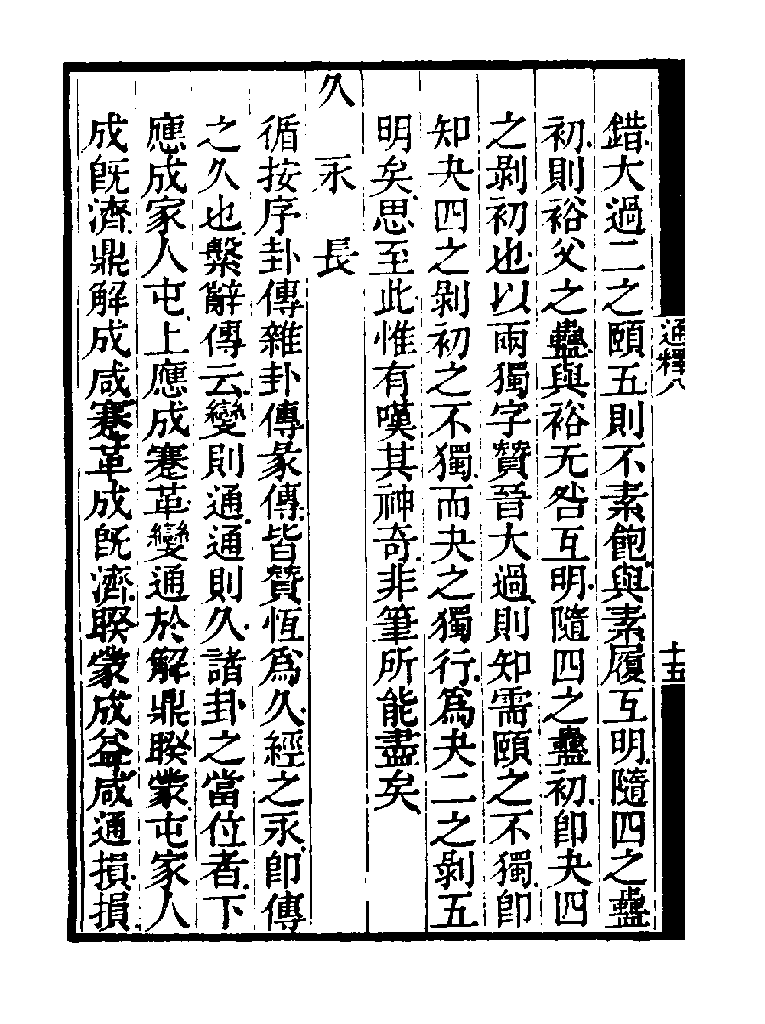 通釋八
十五
錯大過二之頤五則不素飽與素履互明隨四之蠱
初則裕父之蠱與裕无咎互明隨四之蠱初卽夬四
之剝初也以兩獨字贊晉大過則知需頤之不獨卽
知夬四之剝初之不獨而夬之獨行爲夬二之剝五
明矣思至此惟有嘆其神奇非筆所能盡矣
久 永 長
循按序卦傳雜卦傳彖傳皆贊恆爲久經之永卽傳
之久也繫辭傳云變則通通則久諸卦之當位者下
應成家人屯上應成蹇革變通於解鼎睽蒙屯家人
成旣濟鼎解成咸蹇革成旣濟睽蒙成益咸通損損